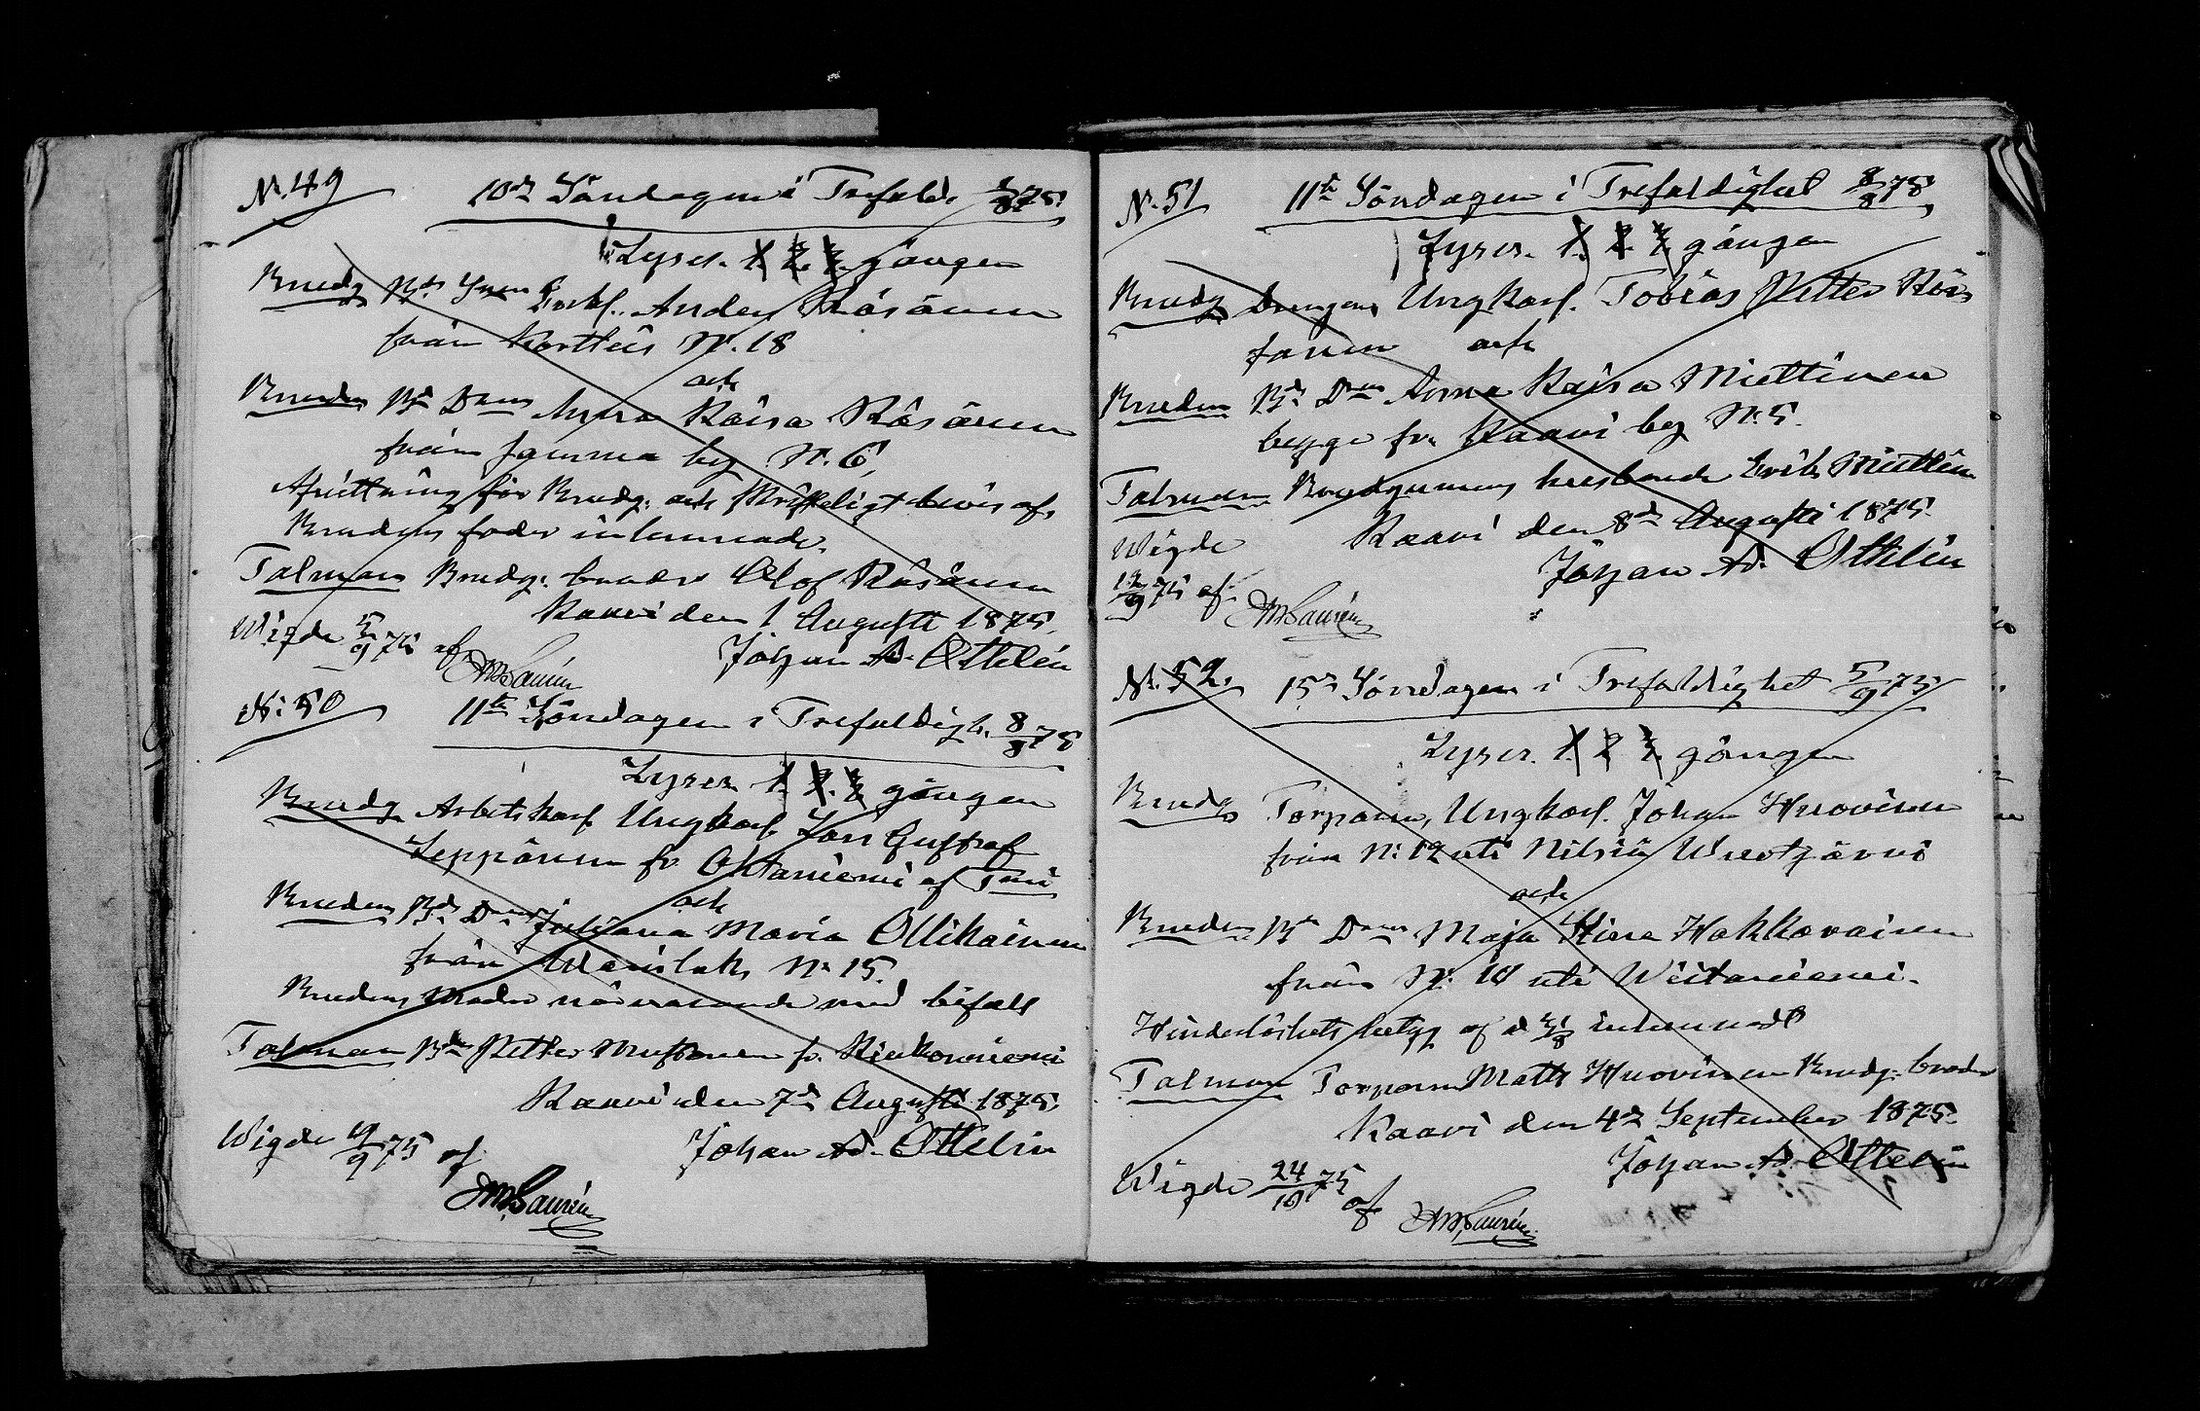 N:49 10de Söndagen i Trefald. 1/8 75.
Lyses. 1. 2. 3. gången
Brudg Bds Son Enkl. Anders Räsänen
från Kortteis N:18
och
Bruden Bd Dr Anna Kaisa Räsänen
från Jamma by N:6,
Afvittring för Brudg. och skriftligt bevis af
Brudens fader inlemnade.
Talman Brudg. broder Olof Räsänen
Kaavi den 1 Augusti 1875.
Wigde 5/9 75 af Johan Ad. Ottelin
N:50 11te Söndagen i Trefaldigh. 8/8 75
Lyses 1. 2. 3 gången
Brudg Arbetskarl Ungkarl Lars Gustaf
Leppänen fr. Ohtaniemi af
och
Bruden Bds Dr Juliana Maria Ollikainen
från N:15.
Brudens Moder närvarande med bifall
Talman Bd Petter fr.
Kaavi den 7de Augusti 1875.
Wigde 9/9 75 af Johan Ad. Ottelin
N:51 11te Söndagen i Trefaldighet 8/8 75
Lyses. 1. 2. 3. gången
Brudg Drengen Ungkarl. Tobias Petter Räs
änen och
Bruden Bds Dr Anna Kaisa Miettinen
begge fr. Kaavi by N:5.
Talman Brudgummens husbonde Erik Miettin
Kaavi den 8de Augusti 1875.
Wigde Johan Ad. Ottelin
12/9 75 af
N:52. 15de Söndagen i Trefaldighet 5/9 75
Lyses. 1. 2 3. gången
Brudg Torparen, Ungkarl. Johan Huovinen
från N:12 uti Nilsiä Wuotjärvi
och
Bruden Bds Dr Maja Stina Hakkarainen
från N: 10 uti Wiitaniemi.
Hinderlöshets betyg af d inlemnadt
Talman Torparen Matts Huovinen Brudg. broder
Kaavi den 4de September 1875.
Johan Ad. Ottelin
Wigde 24/10 75 af